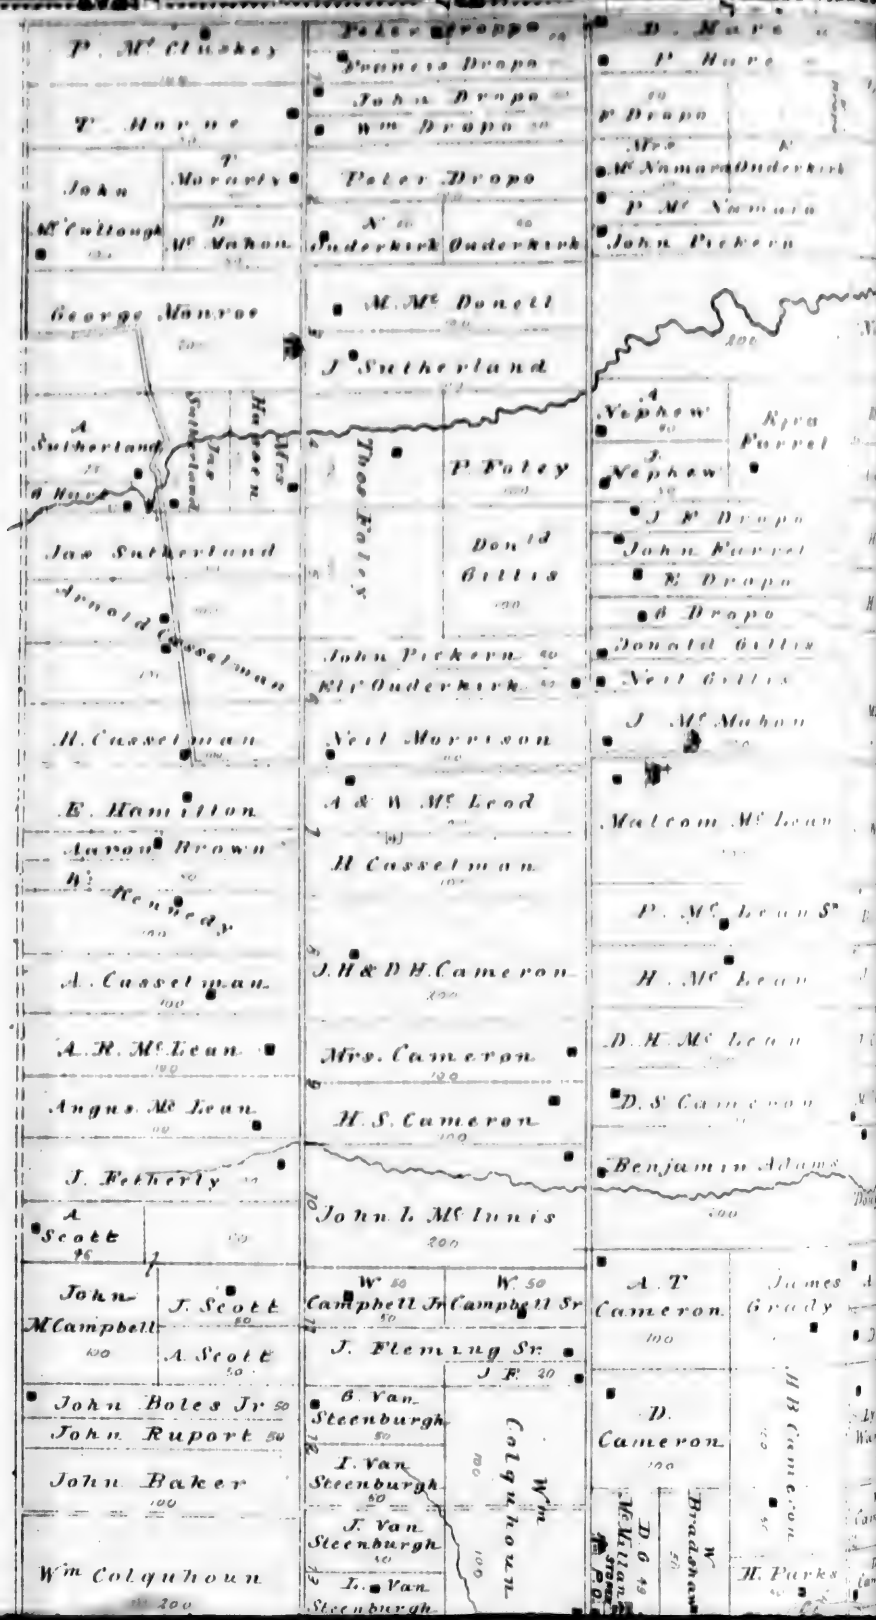 P. Mc Cluskey
100
T Horne
50
John
Mc Cullough
100
T
Morarty
D
Mc Mahon
50
George Monroe
200
A
Sutherland
Jas
Sutherland
Mrs
Hansen
G Hare
Jas Sutherland
Arnold Casselman
100
H. Casselman
100
E. Hamilton
Aaron Brown
50
Wm Kennedy
100
A. Casselman
100
A. R. Mc Lean
100
Angus Mc Lean
100
J. Fetherly
A
Scott
46
John
M Campbell
100
J. Scott
50
A. Scott
50
John Boles Jr 50
John Ruport 50
John Baker
100
Wm Colquhoun
200
Peter Droppo
Francis Dropo
John Dropo
Wm Dropo 50
2
Peter Dropo
100
N 50
Onderkirk
50
Onderkirk
M. Mc Donell
100
3
J Sutherland
4
Thos Foley
P. Foley
100
5
Donld
Gillis
100
John Pickern 50
Eli Onderkirk 50
6
Neil Morrison
100
A & W Mc Leod
7
H Casselman
100
8
J. H & D H. Cameron
200
Mrs. Cameron
100
9
H. S. Cameron
100
10
John L Mc Innis
200
W 50
Campbell Jr
50
W. 50
Campbell Sr
11
J. Fleming Sr.
J F. 20
G. Van
Steenburgh
50
12
I. Van
Steenburgh
50
J. Van
Steenburgh
50
13
L. Van
Steenburgh
Wm
Colquhoun
100
100
D. Hare
P Hare
50
F Dropo
Dropo
Mrs
Mc Namara
K
Onderkirk
P Mc Namara
John Pickern
200
A
Nephew
50
J.
Nephew
50
Ezra
Farrel
J F Dropo
John Farrel
E Dropo
G Dropo
Donald Gillis
Neil Gillis
J Mc Mahon
Malcom Mc Lean
P. Mc Lean Sr
H. Mc Lean
D. H. Mc Lean
D. S Cameron
Benjamin Adams
200
A. T
Cameron
100
James
Grady
D.
Cameron
100
H B Cameron
D G 49
Mc Millan
W
Bradshaw
50
STORE
P.O.
H. Parks